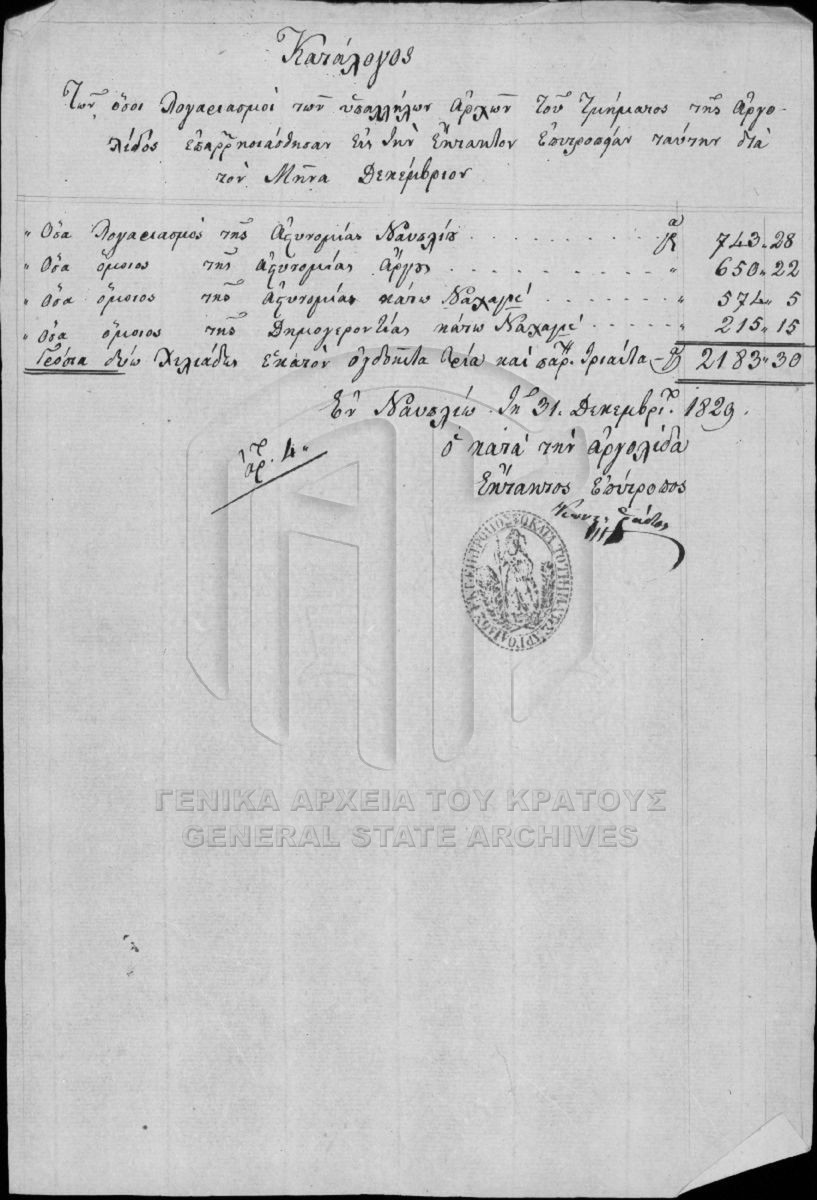 Κατάλογος
Των όσοι λογαριασμοί των υπαλλήλων αρχών του τμήματος της Αργο-
λίδος επαρρησιάσθησαν εις την Έκτακτον Επιτροπείαν ταύτην διά
τον Μήνα Δεκέμβριον
" Όσα λογαριασμός της Αστυνομίας Ναυπλίου 743 " 28
" Όσα όμοιος της Αστυνομίας Άργους " 650 " 22
" Όσα όμοιος της Αστυνομίας κάτω Ναχαγιέ " 574 " 5
" Όσα όμοιος της Δημογεροντίας κάτω Ναχαγιέ " 215 " 15
Γρόσια δύω χιλιάδες εκατόν ογδοήντα τρία και παρ. τριάντα 2183 " 30
Εν Ναυπλίω τη 31. Δεκεμβρί. 1829.
αρ. 4 "
Ο κατά την Αργολίδα
Έκτακτος Επίτροπος
ΓΕΝΙΚΑ ΑΡΧΕΙΑ ΤΟΥ ΚΡΑΤΟΥΣ
GENERAL STATE ARCHIVES